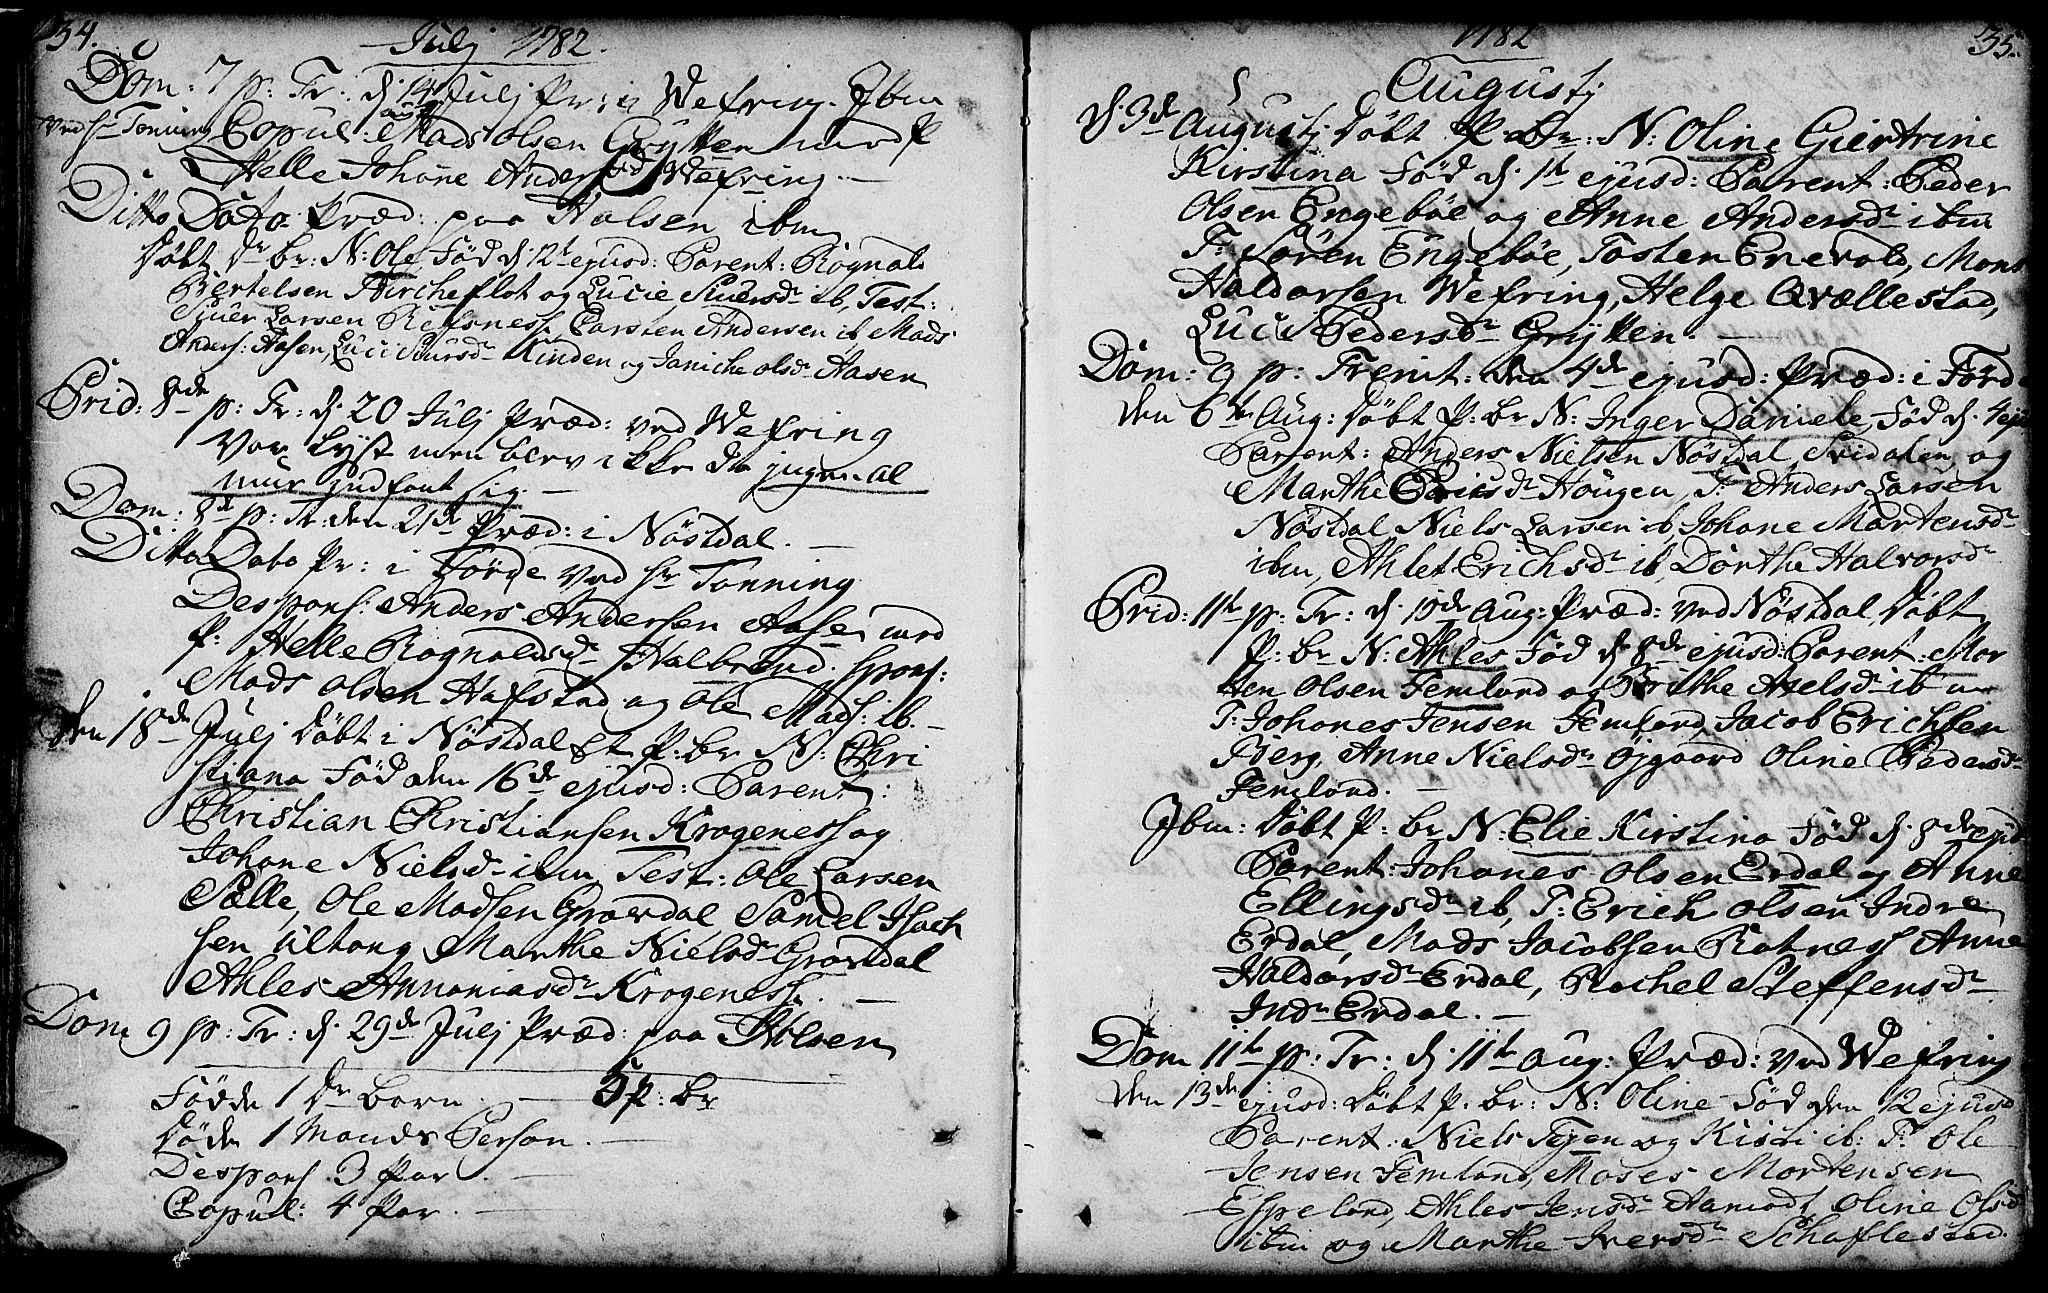 34.
Julj 1782.
Dom: 7 p: Tr: d: 14 Julj Pr: i Wefring. Jbm
ved Hr Tonning Copul: Mads Olsen Grytten med P
Helle Johane Andersd Wefring. —
Ditto Dato Præd: paa Halsen ibm
Døbt Dr br: N: Ole Fød d: 12t ejusd: Parent: Rognald
Bertelsen Kircheflot og Lucie Siversd ib, Test:
Siver Larsen Refsness, Carsten Andersen ib, Mads
Anders: Aasen, Luci Siursd Kinden og Janiche Olsd Aasen
Prid: 8de p: Tr: d: 20 Julj Præd: ved Wefring
var lyst men blev ikke da ingen al
mue indfant sig. —
Dom: 8de p: Tr: den 21de Præd: i Nøstdal. —
Ditto Dato Pr: i Førde ved Hr Tonning
Despons: Anders Andersen Aase med
P: Helle Rognaldsd Halbrend. Spons:
Mads Olsen Hafstad og Ole Mads: ib. —
Den 18de Julj Døbt i Nøstdal Et P: br N: Chri
stiana Fød den 16de ejusd: Parent:
Christian Christiansen Krogeness og
Johane Nielsd ibm Test: Ole Larsen
Sælle, Ole Madsen Grøvdal Samel Isach
sen Ultang Marthe Nielsd Grøvdal
Ahles Annaniasd Krogeness. —
Dom 9 p: Tr: d: 29de Julj Præd: paa Holsen
Fødde 1 Dr børn. — 5 p: br
Døde 1 Mands Person. —
Despons 3 Par. —
Copul: 4 Par. —
1782
35.
Augustj
d: 3de Augustj Døbt P br: N: Oline Giertrine
Kirstina Fød d: 1t ejusd: Parent: Peder
Olsen Engebøe og Anne Andersd ibm
T: Søren Engebøe, Tosten Erevold, Mons
Haldorsen Wefring, Helge Qvællestad,
Luci Pedersd Grytten. —
Dom: 9 p: Trenit: den 4de ejusd: Præd: i Førde
den 6te Aug: Døbt P: br N: Inger Daniele, Fød d: 4 eju
Parent: Anders Nielsen Nøstdal Sridalen, og
Marthe Ericsd Hougen, T: Anders Larsen
Nøstdal Niels Larsen ib, Johane Martensd
ibm, Ahlet Erichsd ib, Dorthe Halvorsd
Prid: 11te p: Tr: d: 10de Aug: Præd: ved Nøstdal Døbt
P: br N: Ahles Fød d: 8de ejusd: Parent: Mor
ten Olsen Femlord og Brithe Axelsd ibm
T: Johanes Jensen Femlord, Jacob Erichsen
Berg, Anne Nielsd Øjgaard Oline Pedersd
Femlord. —
Jbm: Døbt P: br N: Elie Kirstina Fød d: 8de ejusd
Parent: Johanes Olsen Erdal og Anne
Ellingsd ib, T: Erich Olsen Indre
Erdal, Mads Jacobsen Ratness Anne
Haldorsd Erdal, Rachel Steffensd
Indr Erdal. —
Dom 11te p: Tr: d: 11te Aug: Præd: ved Wefring
den 13de ejusd: Døbt P: br: N: Oline Fød den 12 ejusd
Parent: Niels Tejen og Kisti ib: T: Ole
Jensen Femlord, Moses Mortensen
Espelord, Ahles Jensd Aamodt, Oline Olsd
ibm og Marthe Iversd Schaflestad.